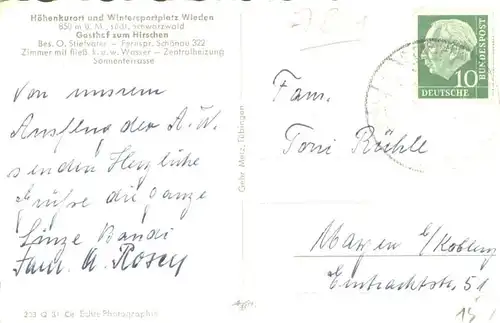 Höhenkurort und Wintersportplatz Wieden
850 m ü. M., südl. Schwarzwald
Gasthof zum Hirschen
Bes. O. Stiefvater - Fernspr. Schönau 322
Zimmer mit fließ. k. u. w. Wasser - Zentralheizung
Sonnenterrasse
Von unserm
Ausflug der A.W.
senden Herzliche
Grüße die ganze
Fam. A. Rosey
Gebr. Metz, Tübingen
Echte Photographie
10
BUNDESPOST
DEUTSCHE
Fam.
Toni Rühle
Mayen b/Koblenz
Eintrachtstr. 51